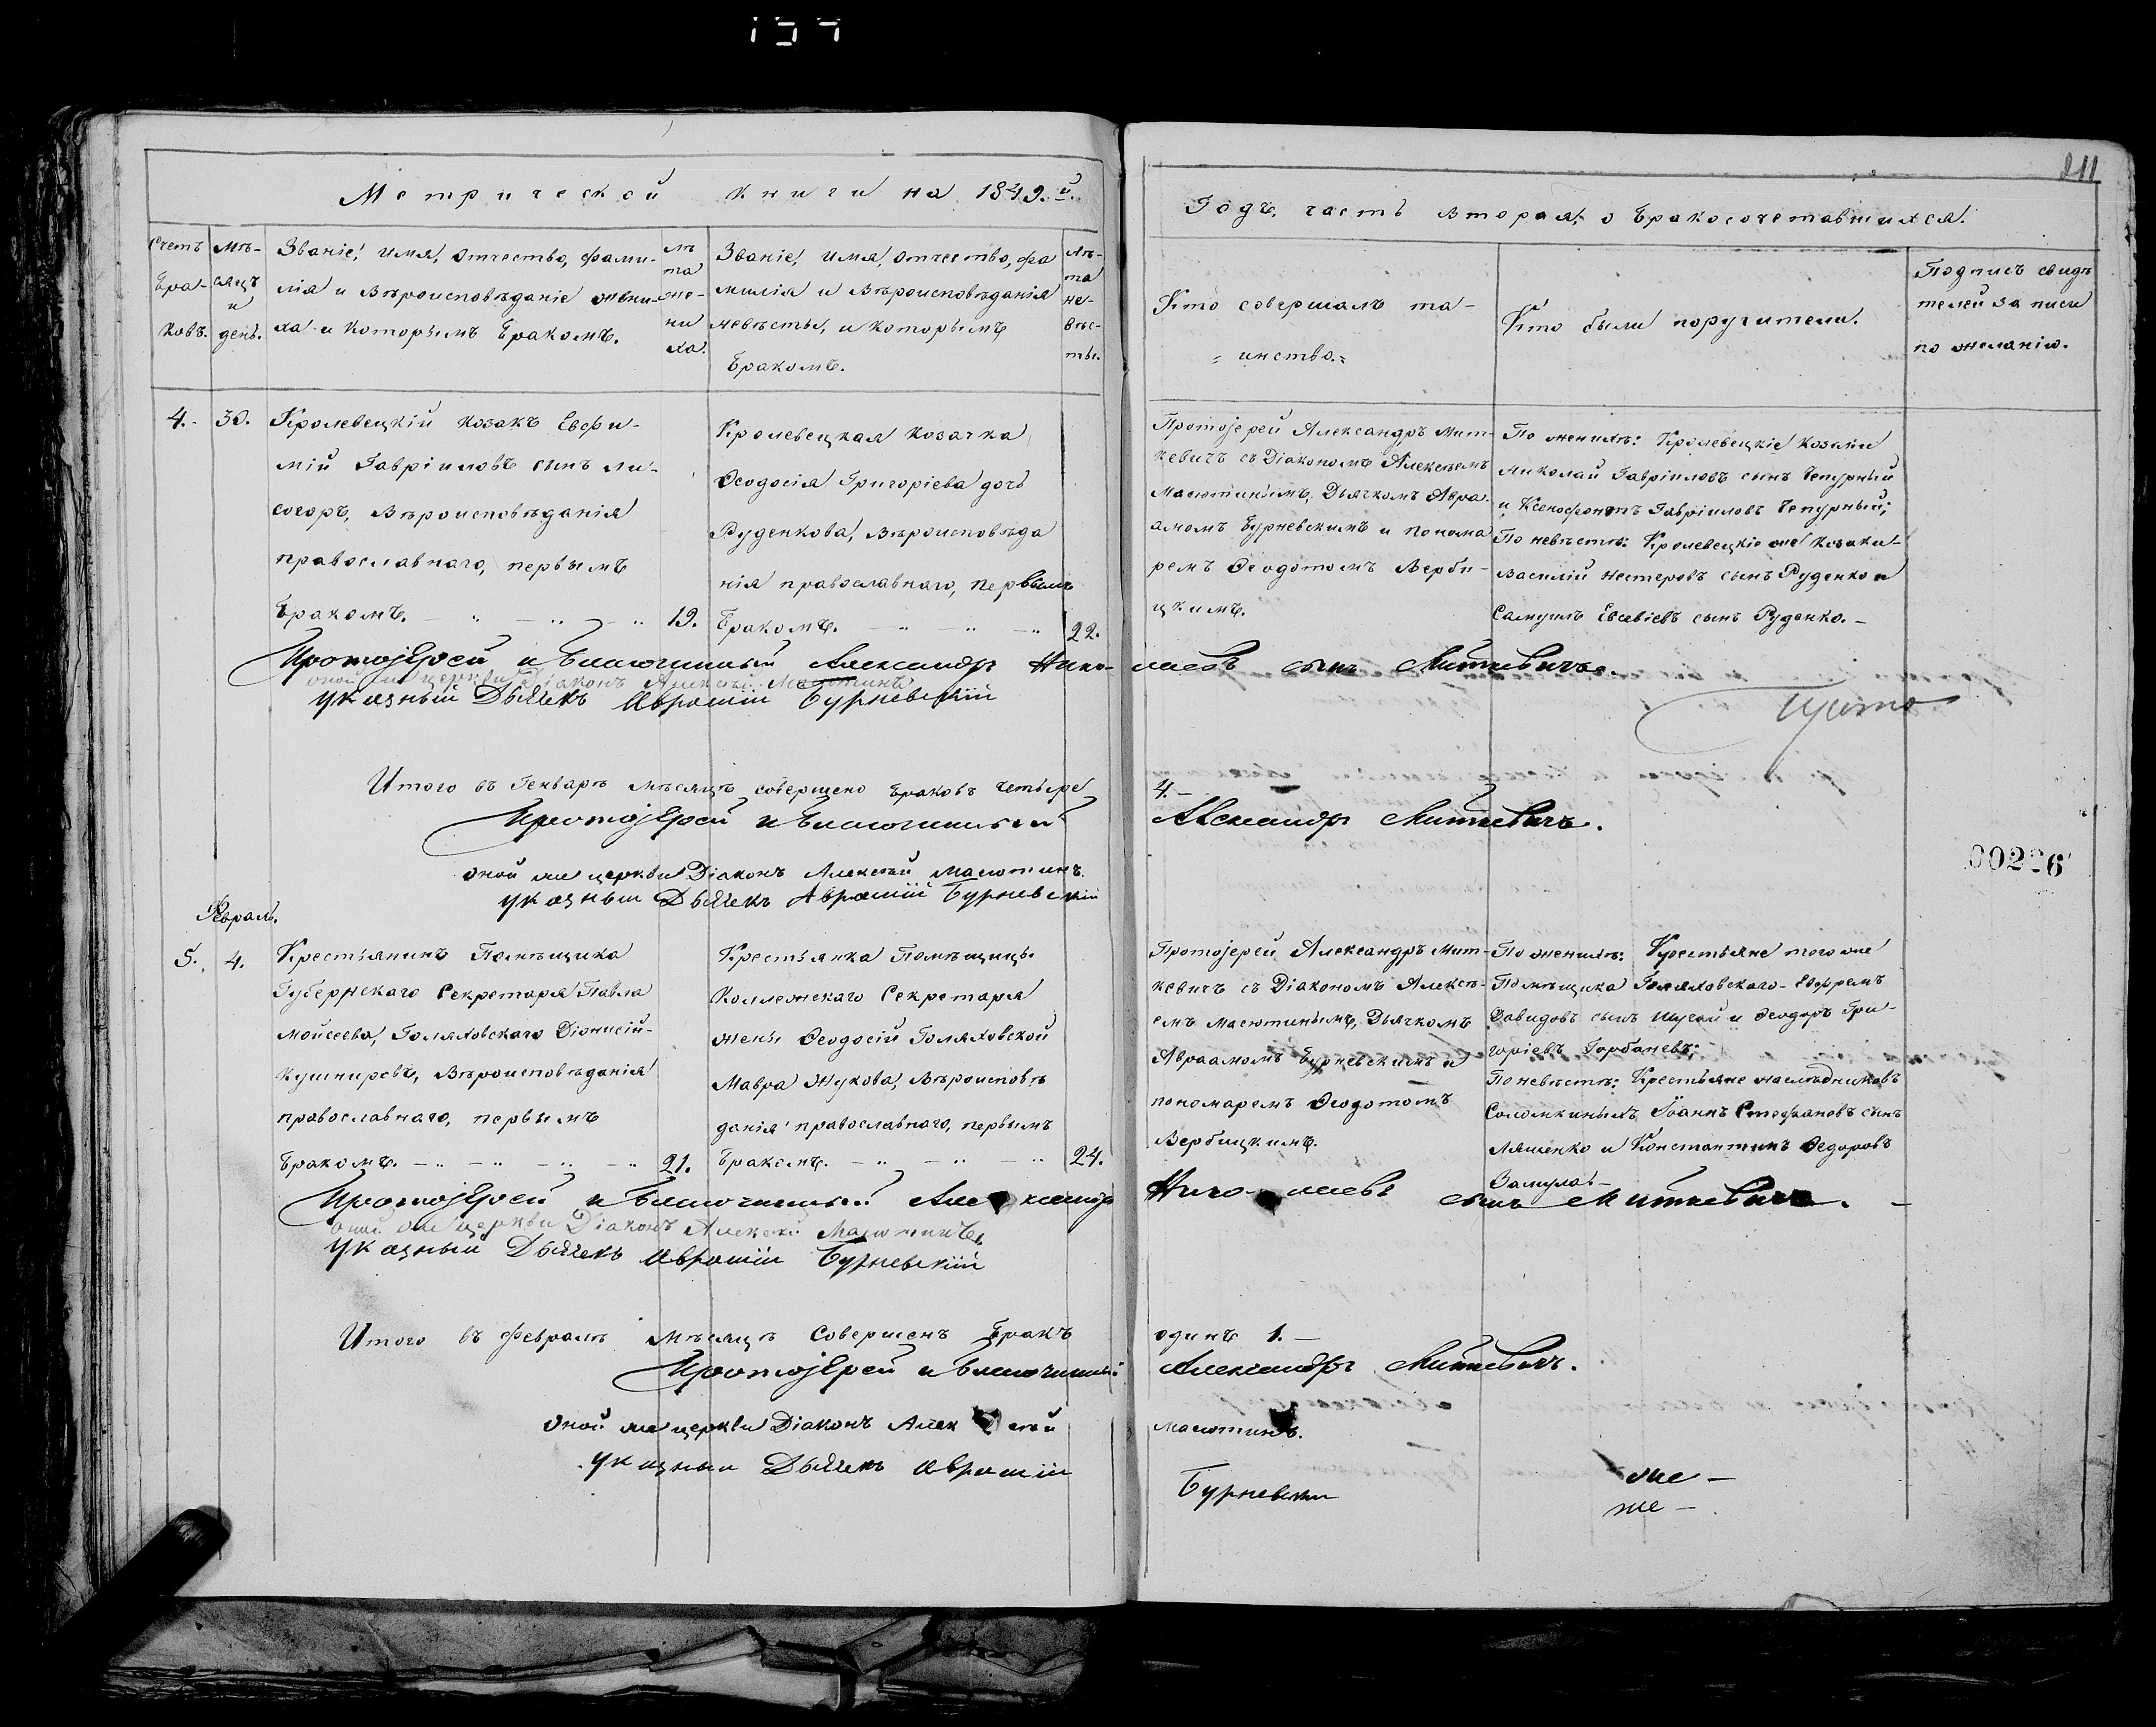 Метрической книги на 1849.й
Годъ, часть вторая, о бракосочетавшихся.
211
Счетъ браковъ.
Мѣсяцъ и день.
Званіе, имя, отчество, фами-
лія и вѣроисповѣданіе жени-
ха и которымъ бракомъ.
Лѣта жениха.
Званіе, имя, отчество, фа
милія и вѣроисповѣданія
невѣсты, и которымъ
бракомъ.
Лѣта невѣсты.
Кто совершалъ та-
инство.
Кто были поручители.
Подпись свидѣ
телей записи
по желанію.
4. 30.
Кролевецкій козакъ Евфи-
мій Гавріиловъ сынъ Ли-
согоръ, вѣроисповѣданія
православнаго, первымъ
бракомъ. 19.
Кролевецкая козачка
Ѳеодосія Григоріева дочь
Руденкова, вѣроисповѣда
нія православнаго, первымъ
бракомъ. 22.
Протоіерей Александръ Мит-
кевичъ съ Діакономъ Алексѣемъ
Масютинымъ, Дьячкомъ Авра-
амомъ Бурневскимъ и понома
ремъ Ѳеодотомъ Верби-
цкимъ.
По женихѣ: Кролевецкіе козаки
Николай Гавріиловъ сынъ Чепурный
и Ксенофонтъ Гавріиловъ Чепурный;
По невѣстѣ: Кролевецкіе же козаки
Василій Нестеровъ сынъ Руденко и
Самуилъ Евсевіевъ сынъ Руденко.
Протоіерей и Благочинный Александръ Николаевъ сынъ Миткевичъ.
оной же церкви Діаконъ Алексѣй Масютинъ
указный Дьячекъ Аврамій Бурневскій
Итого въ Генварѣ мѣсяцѣ совершено браковъ четыре 4.
Протоіерей и Благочинный Александръ Миткевичъ.
оной же церкви Діаконъ Алексѣй Масютинъ.
указный Дьячекъ Аврамій Бурневскій
00226
Февраль.
5. 4.
Крестьянинъ Помѣщика
Губернскаго Секретаря Павла
Моисеева, Голяховскаго Діонисій
Кушниревъ, вѣроисповѣданія
православнаго, первымъ
бракомъ. 21.
Крестьянка Помѣщицы
Коллежскаго Секретаря
жены Ѳеодосій Голяховской
Мавра Жукова, вѣроисповѣ
данія православнаго, первымъ
бракомъ. 24.
Протоіерей Александръ Мит-
кевичъ съ Діакономъ Алексѣ-
емъ Масютинымъ, Дьячкомъ
Авраамомъ Бурневскимъ и
пономаремъ Ѳеодотомъ
Вербицкимъ.
По женихѣ: Крестьяне того же
Помѣщика Голяховскаго Ефремъ
Давидовъ сынъ и Ѳеодоръ Гри-
горіевъ Горбаневъ;
По невѣстѣ: Крестьяне наслѣдниковъ
Соломкиныхъ Іоаннъ Стефановъ сынъ
Ляшенко и Константинъ Ѳедоровъ
Замула
Протоіерей и Благочинный Александръ Николаевъ сынъ Миткевичъ.
оной же церкви Діаконъ Алексѣй Масютинъ.
указный Дьячекъ Аврамій Бурневскій
Итого въ Февралѣ мѣсяцѣ совершенъ бракъ одинъ 1.
Протоіерей и Благочинный Александръ Миткевичъ.
оной же церкви Діаконъ Алексѣй Масютинъ.
указный Дьячекъ Аврамій Бурневскій
же
же